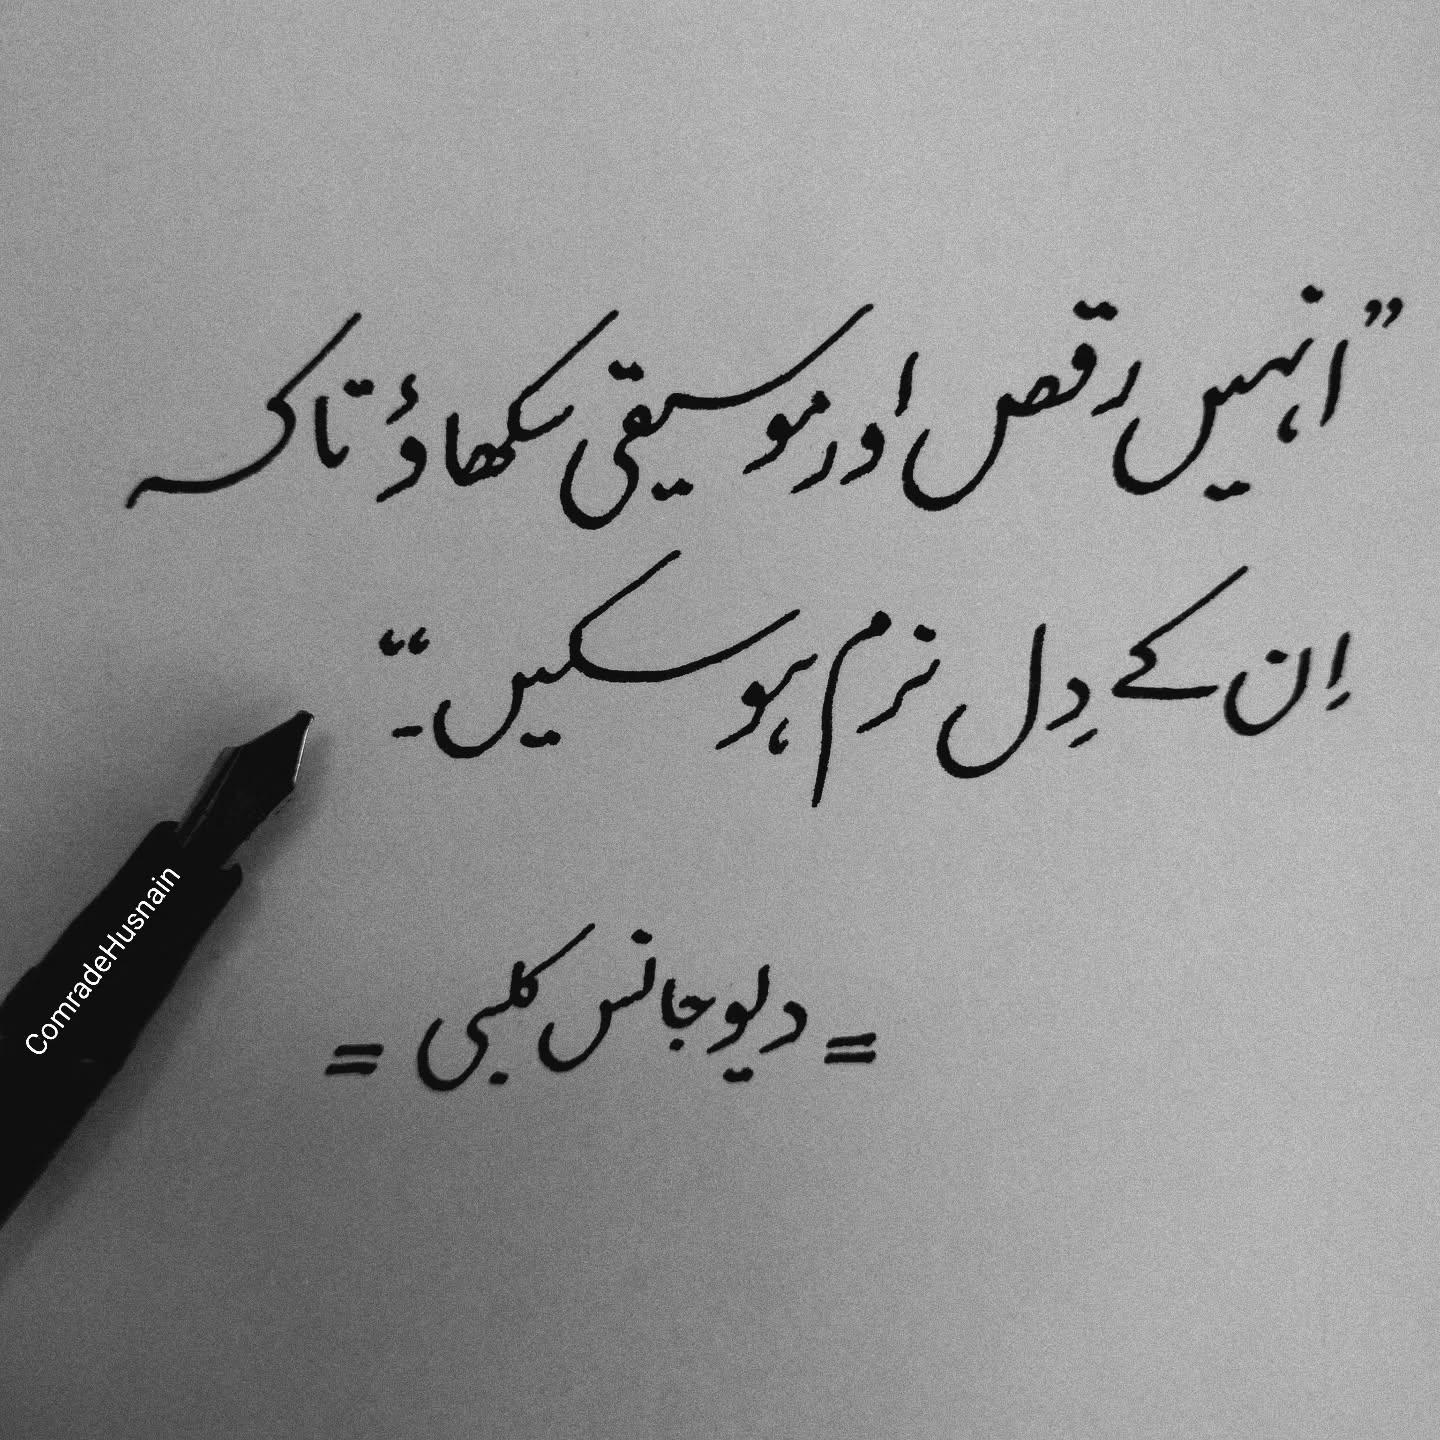 ”انہیں رقص اور موسیقی سکھاؤ تاکہ
اِن کے دِل نرم ہو سکیں۔“
= دیوجانس کلبی =
ComradeHusnain